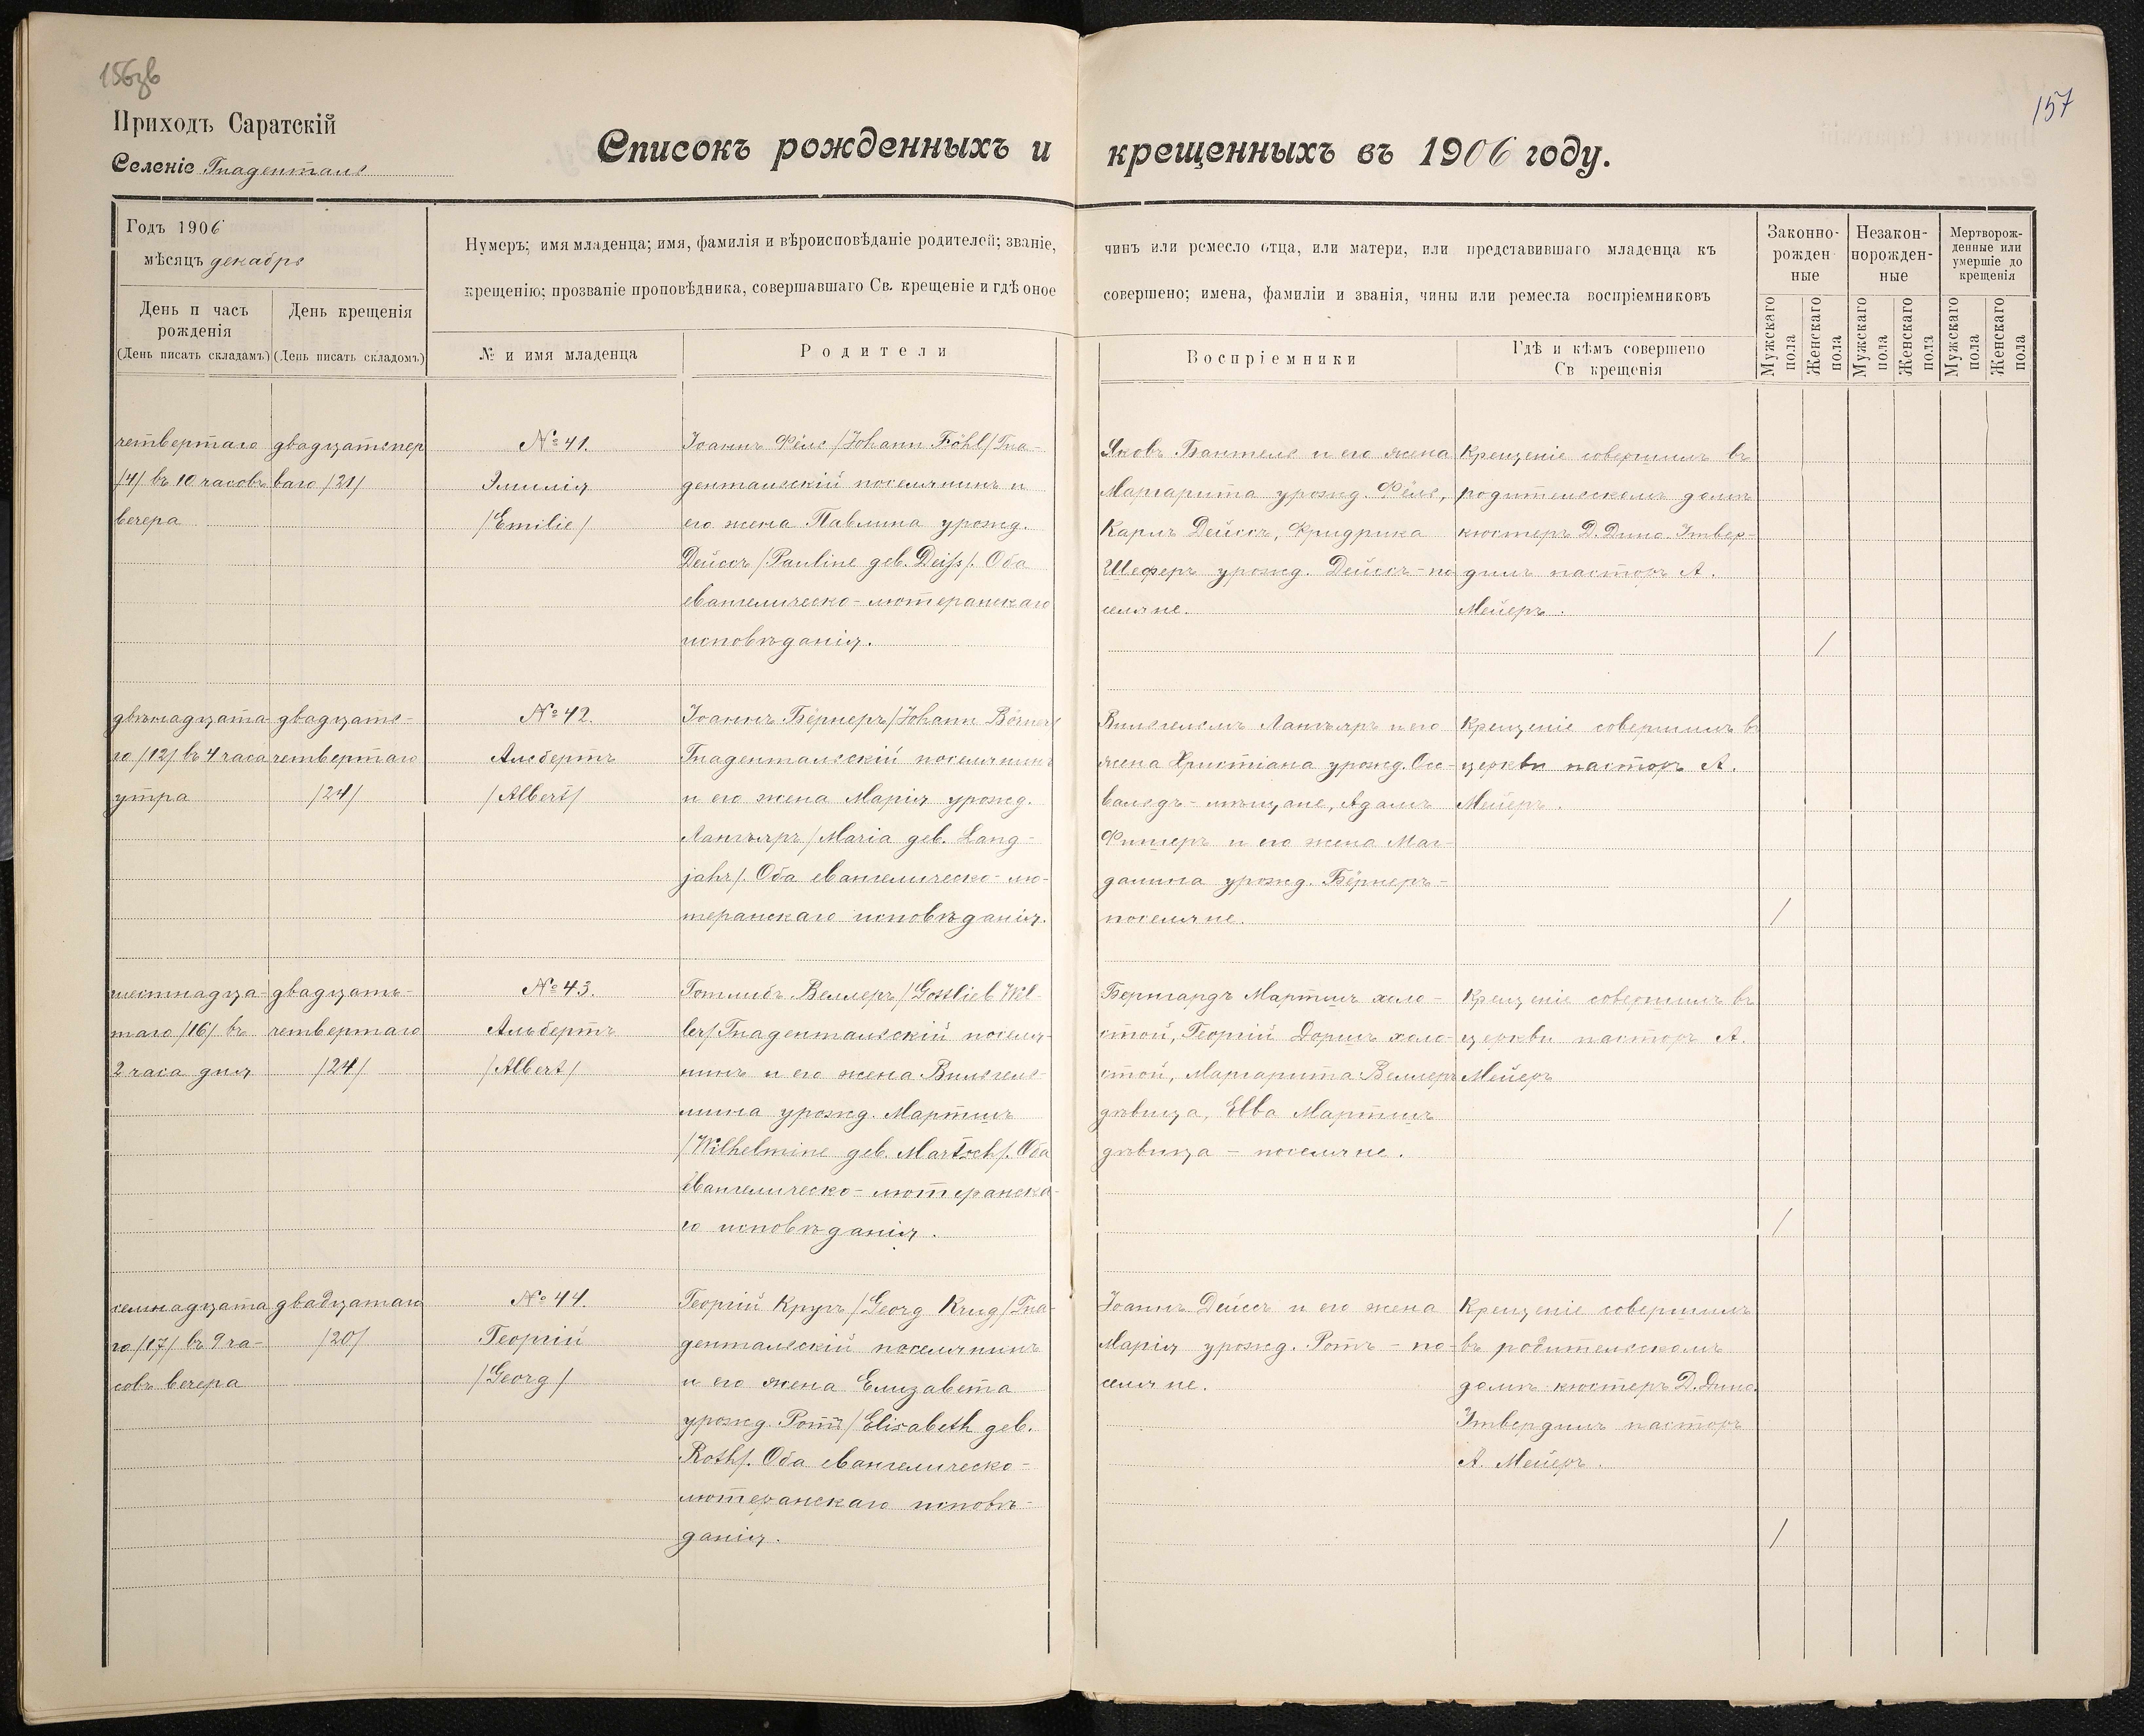 156зв
157
Приходъ Саратскій
Селеніе Гнаденталь
Списокъ рожденныхъ и крещенныхъ въ 1906 году.
Годъ 1906
мѣсяцъ декабрь
День п часъ рожденія
(День писать складамъ)
День крещенія
(День писать складомъ)
Нумеръ; имя младенца; имя, фамилія и вѣроисповѣданіе родителей; званіе, чинъ или ремесло отца, или матери, или представившаго младенца къ
крещенію; прозваніе проповѣдника, совершавшаго Св. крещеніе и гдѣ оное совершено; имена, фамиліи и званія, чины или ремесла воспріемниковъ
№ и имя младенца
Родители
Воспріемники
Гдѣ и кѣмъ совершено
Св крещенія
Законно-
рожден
ные
Незакон-
норожден-
ные
Мертворож-
денные или
умершіе до
крещенія
Мужскаго пола
Женскаго пола
Мужскаго пола
Женскаго пола
Мужскаго пола
Женскаго пола
четвертаго
/4/ въ 10 часовъ
вечера
двадцатьпер
ваго /21/
№ 41.
Эмилія
/Emilie/
Іоаннъ Фёль /Johann Föhl/ Гна-
дентальскій поселянинъ и
его жена Павлина урожд.
Дейссъ /Pauline geb. Deiss/. Оба
евангелическо-лютеранскаго
исповѣданія.
Яковъ Бантель и его жена
Маргарита урожд. Фёль,
Карлъ Дейссъ, Фридрика
Шеферъ урожд. Дейссъ - по
селяне.
Крещеніе совершилъ въ
родительскомъ домѣ
кюстеръ Д. Дино. Утвер-
дилъ пасторъ А.
Мейеръ.
/
двѣнадцата-
го /12/ въ 4 часа
утра
двадцать-
четвертаго
/24/
№ 42.
Альбертъ
/Albert/
Іоаннъ Бёрнеръ /Johann Börner/
Гнадентальскій поселянинъ
и его жена Марія урожд.
Лангъяръ /Maria geb. Lang-
jahr/. Оба евангелическо-лю-
теранскаго исповѣданія.
Вильгельмъ Лангъяръ и его
жена Христіана урожд. Ос-
вальдъ - мѣщане, Адамъ
Фишеръ и его жена Маг-
далина урожд. Бёрнеръ -
поселяне.
Крещеніе совершилъ въ
церкви пасторъ А.
Мейеръ.
/
шестнадца-
таго /16/ въ
2 часа дня
двадцать-
четвертаго
/24/
№ 43.
Альбертъ
/Albert/
Готлибъ Веллеръ /Gottlieb Wel-
ler/ Гнадентальскій поселя-
нинъ и его жена Вильгель-
мина урожд. Мартшъ
/Wilhelmine geb. Martsch/. Оба
евангелическо-лютеранска-
го исповѣданія.
Бернгардъ Мартшъ холо-
стой, Георгій Доршъ холо-
стой, Маргарита Веллеръ
дѣвица, Евва Мартшъ
дѣвица - поселяне.
Крещеніе совершилъ въ
церкви пасторъ А.
Мейеръ
/
семнадцата
го /17/ въ 9 ча-
совъ вечера
двадцатаго
/20/
№ 44.
Георгій
/Georg/
Георгій Кругъ /Georg Krug/ Гна-
дентальскій поселянинъ
и его жена Елизавета
урожд. Ротъ /Elisabeth geb.
Roth/. Оба евангелическо-
лютеранскаго исповѣ-
данія.
Іоаннъ Дейссъ и его жена
Марія урожд. Ротъ - по-
селяне.
Крещеніе совершилъ
въ родительскомъ
домѣ кюстеръ Д. Дино.
Утвердилъ пасторъ
А. Мейеръ.
/